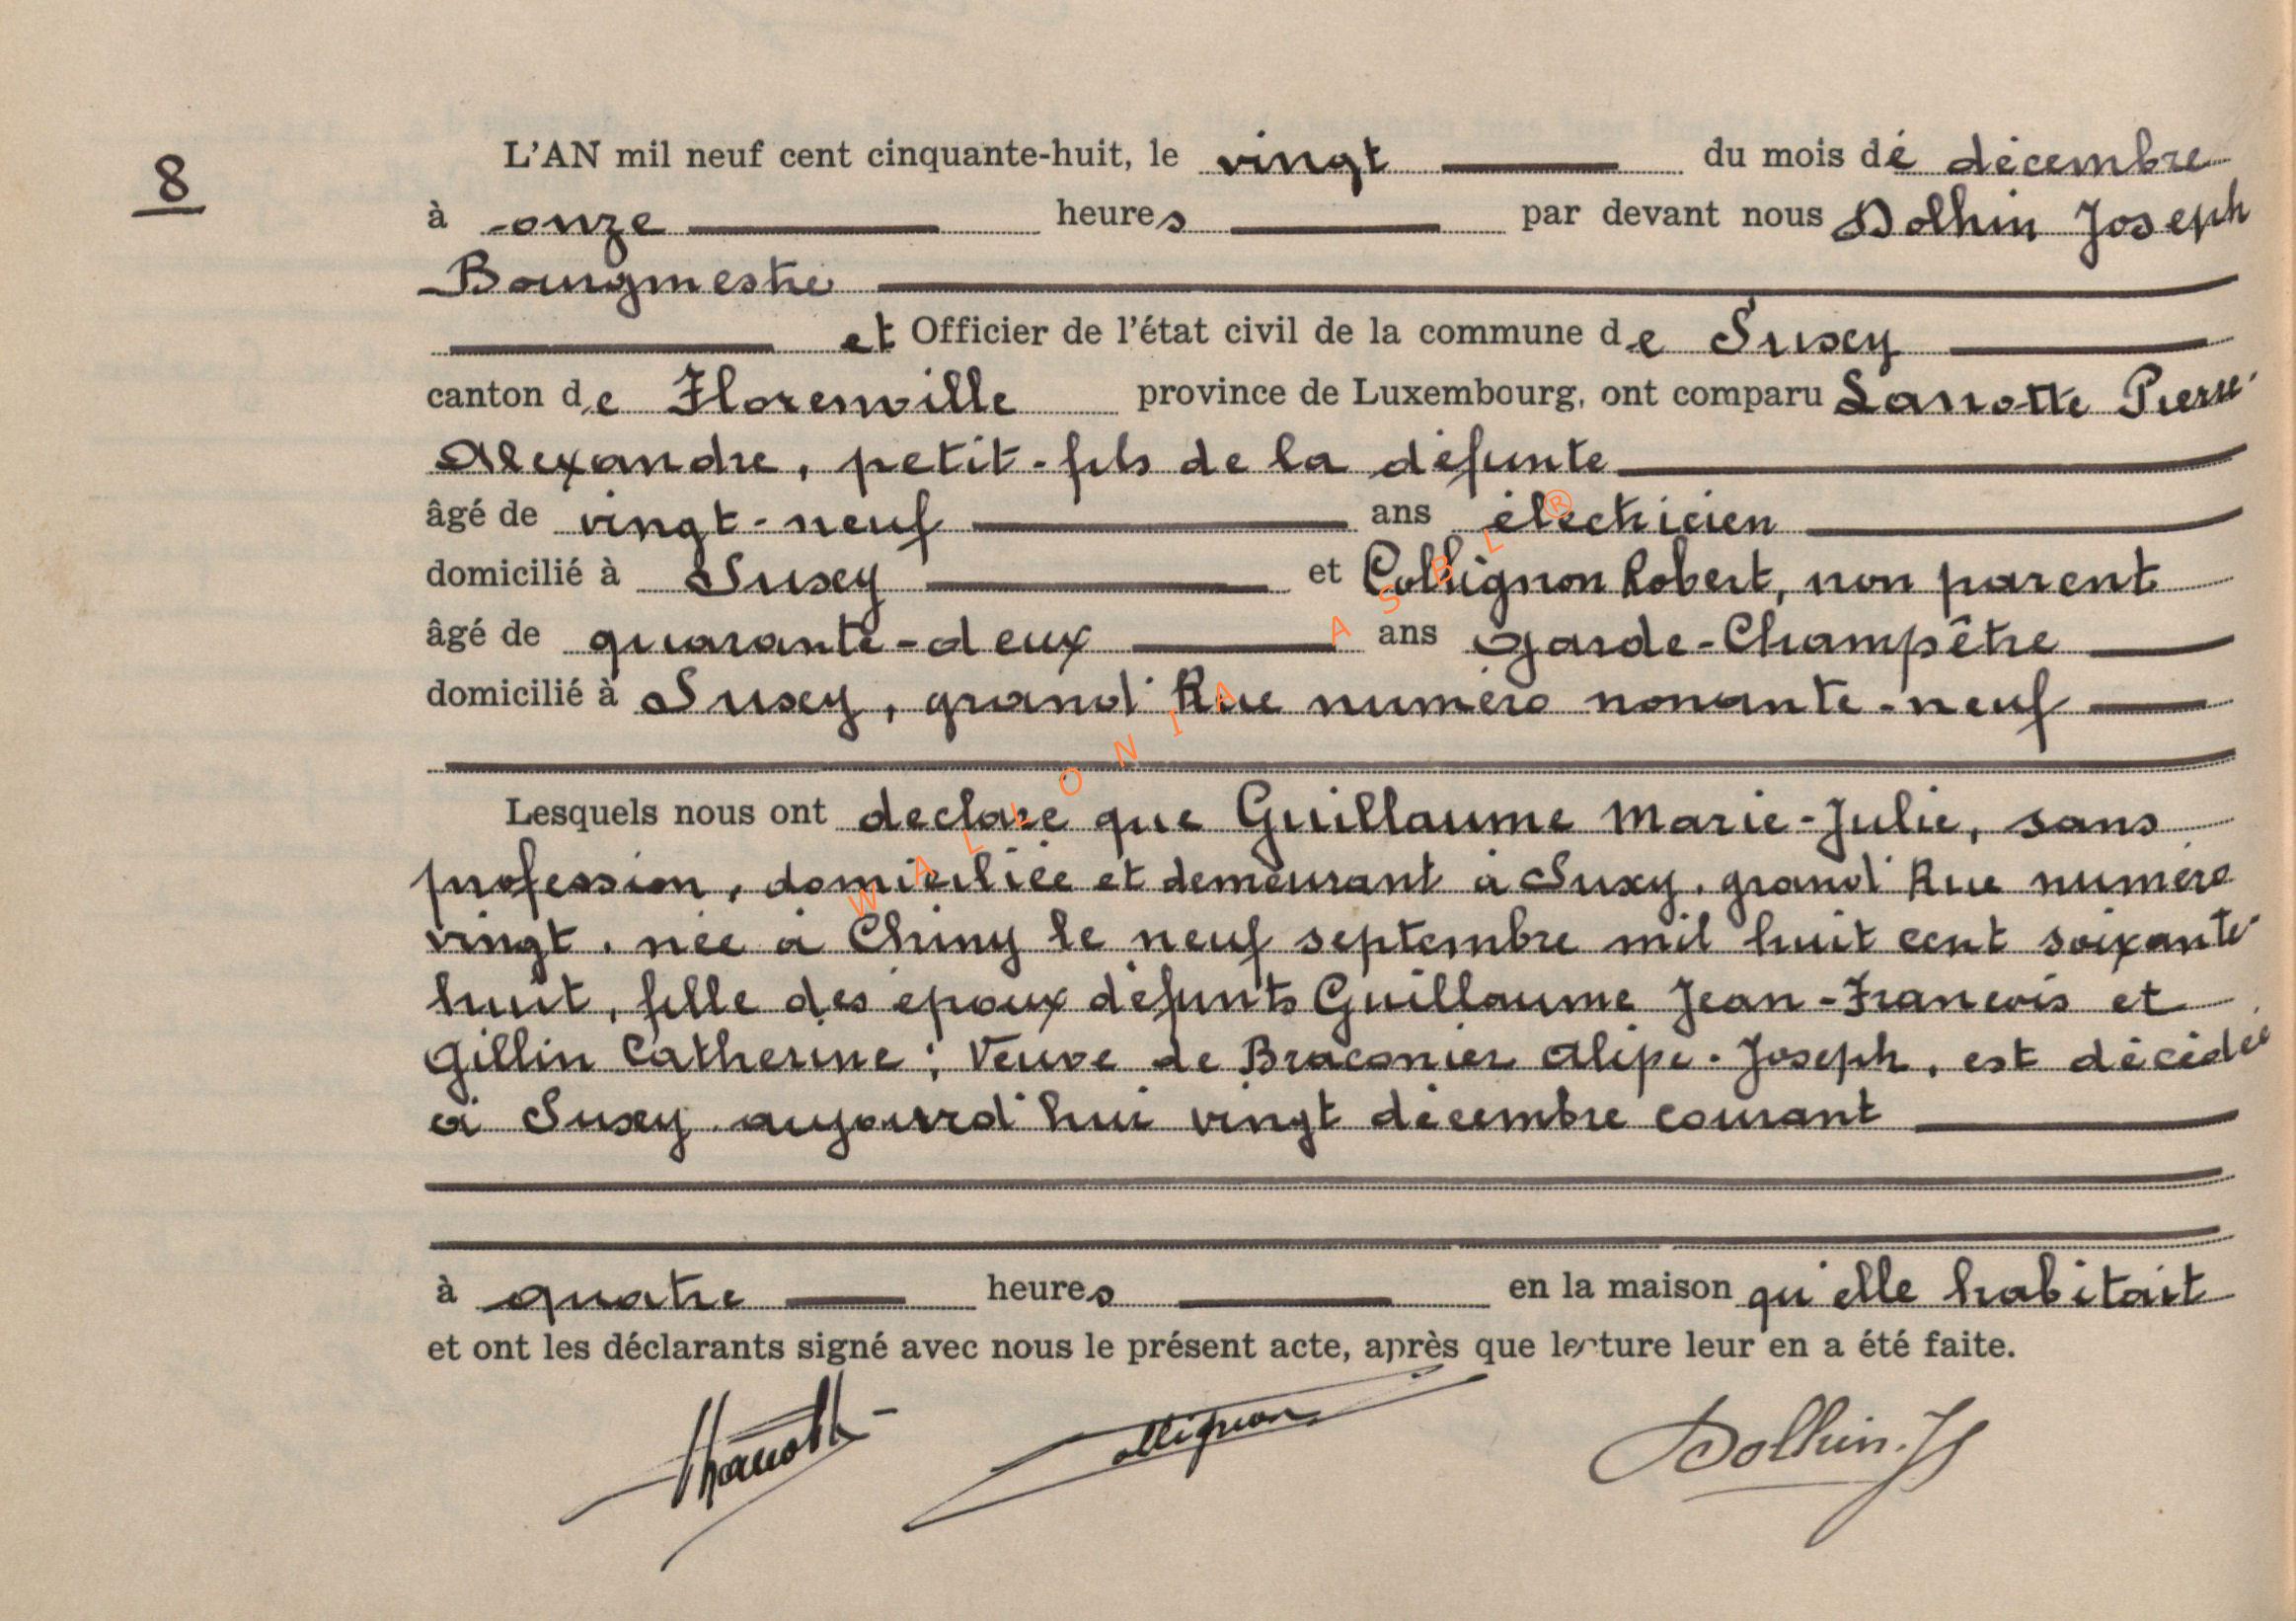 8
L'AN mil neuf cent cinquante-huit, le vingt du mois de décembre
à onze heures par devant nous Dolhin Joseph
Bourgmestre
et Officier de l'état civil de la commune de Suxy
canton de Florenville province de Luxembourg, ont comparu Lanotte Pierre
Alexandre, petit-fils de la défunte
âgé de vingt-neuf ans électricien
domicilié à Suxy et Collignon Robert, non parent
âgé de quarante-deux ans garde-Champêtre
domicilié à Suxy, grand'Rue numéro nonante-neuf
Lesquels nous ont déclaré que Guillaume Marie-Julie, sans
profession, domiciliée et demeurant à Suxy, grand'Rue numéro
vingt, née à Chiny le neuf septembre mil huit cent soixante
huit, fille des époux défunts Guillaume Jean-François et
Gillin Catherine; Veuve de Braconier Alipe-Joseph, est décédée
à Suxy aujourd'hui vingt décembre courant
à quatre heures en la maison qu'elle habitait
et ont les déclarants signé avec nous le présent acte, après que lecture leur en a été faite.
Collignon Dolhin. Js
WALLONIA ASBL ®